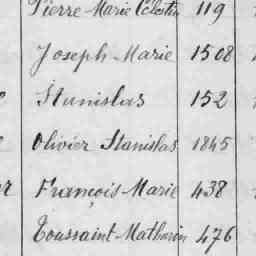 Pierre Marie Célestin 119
Joseph Marie 1508
Stanislas 152
Olivier Stanislas 1845
François Marie 438
Toussaint Mathurin 476